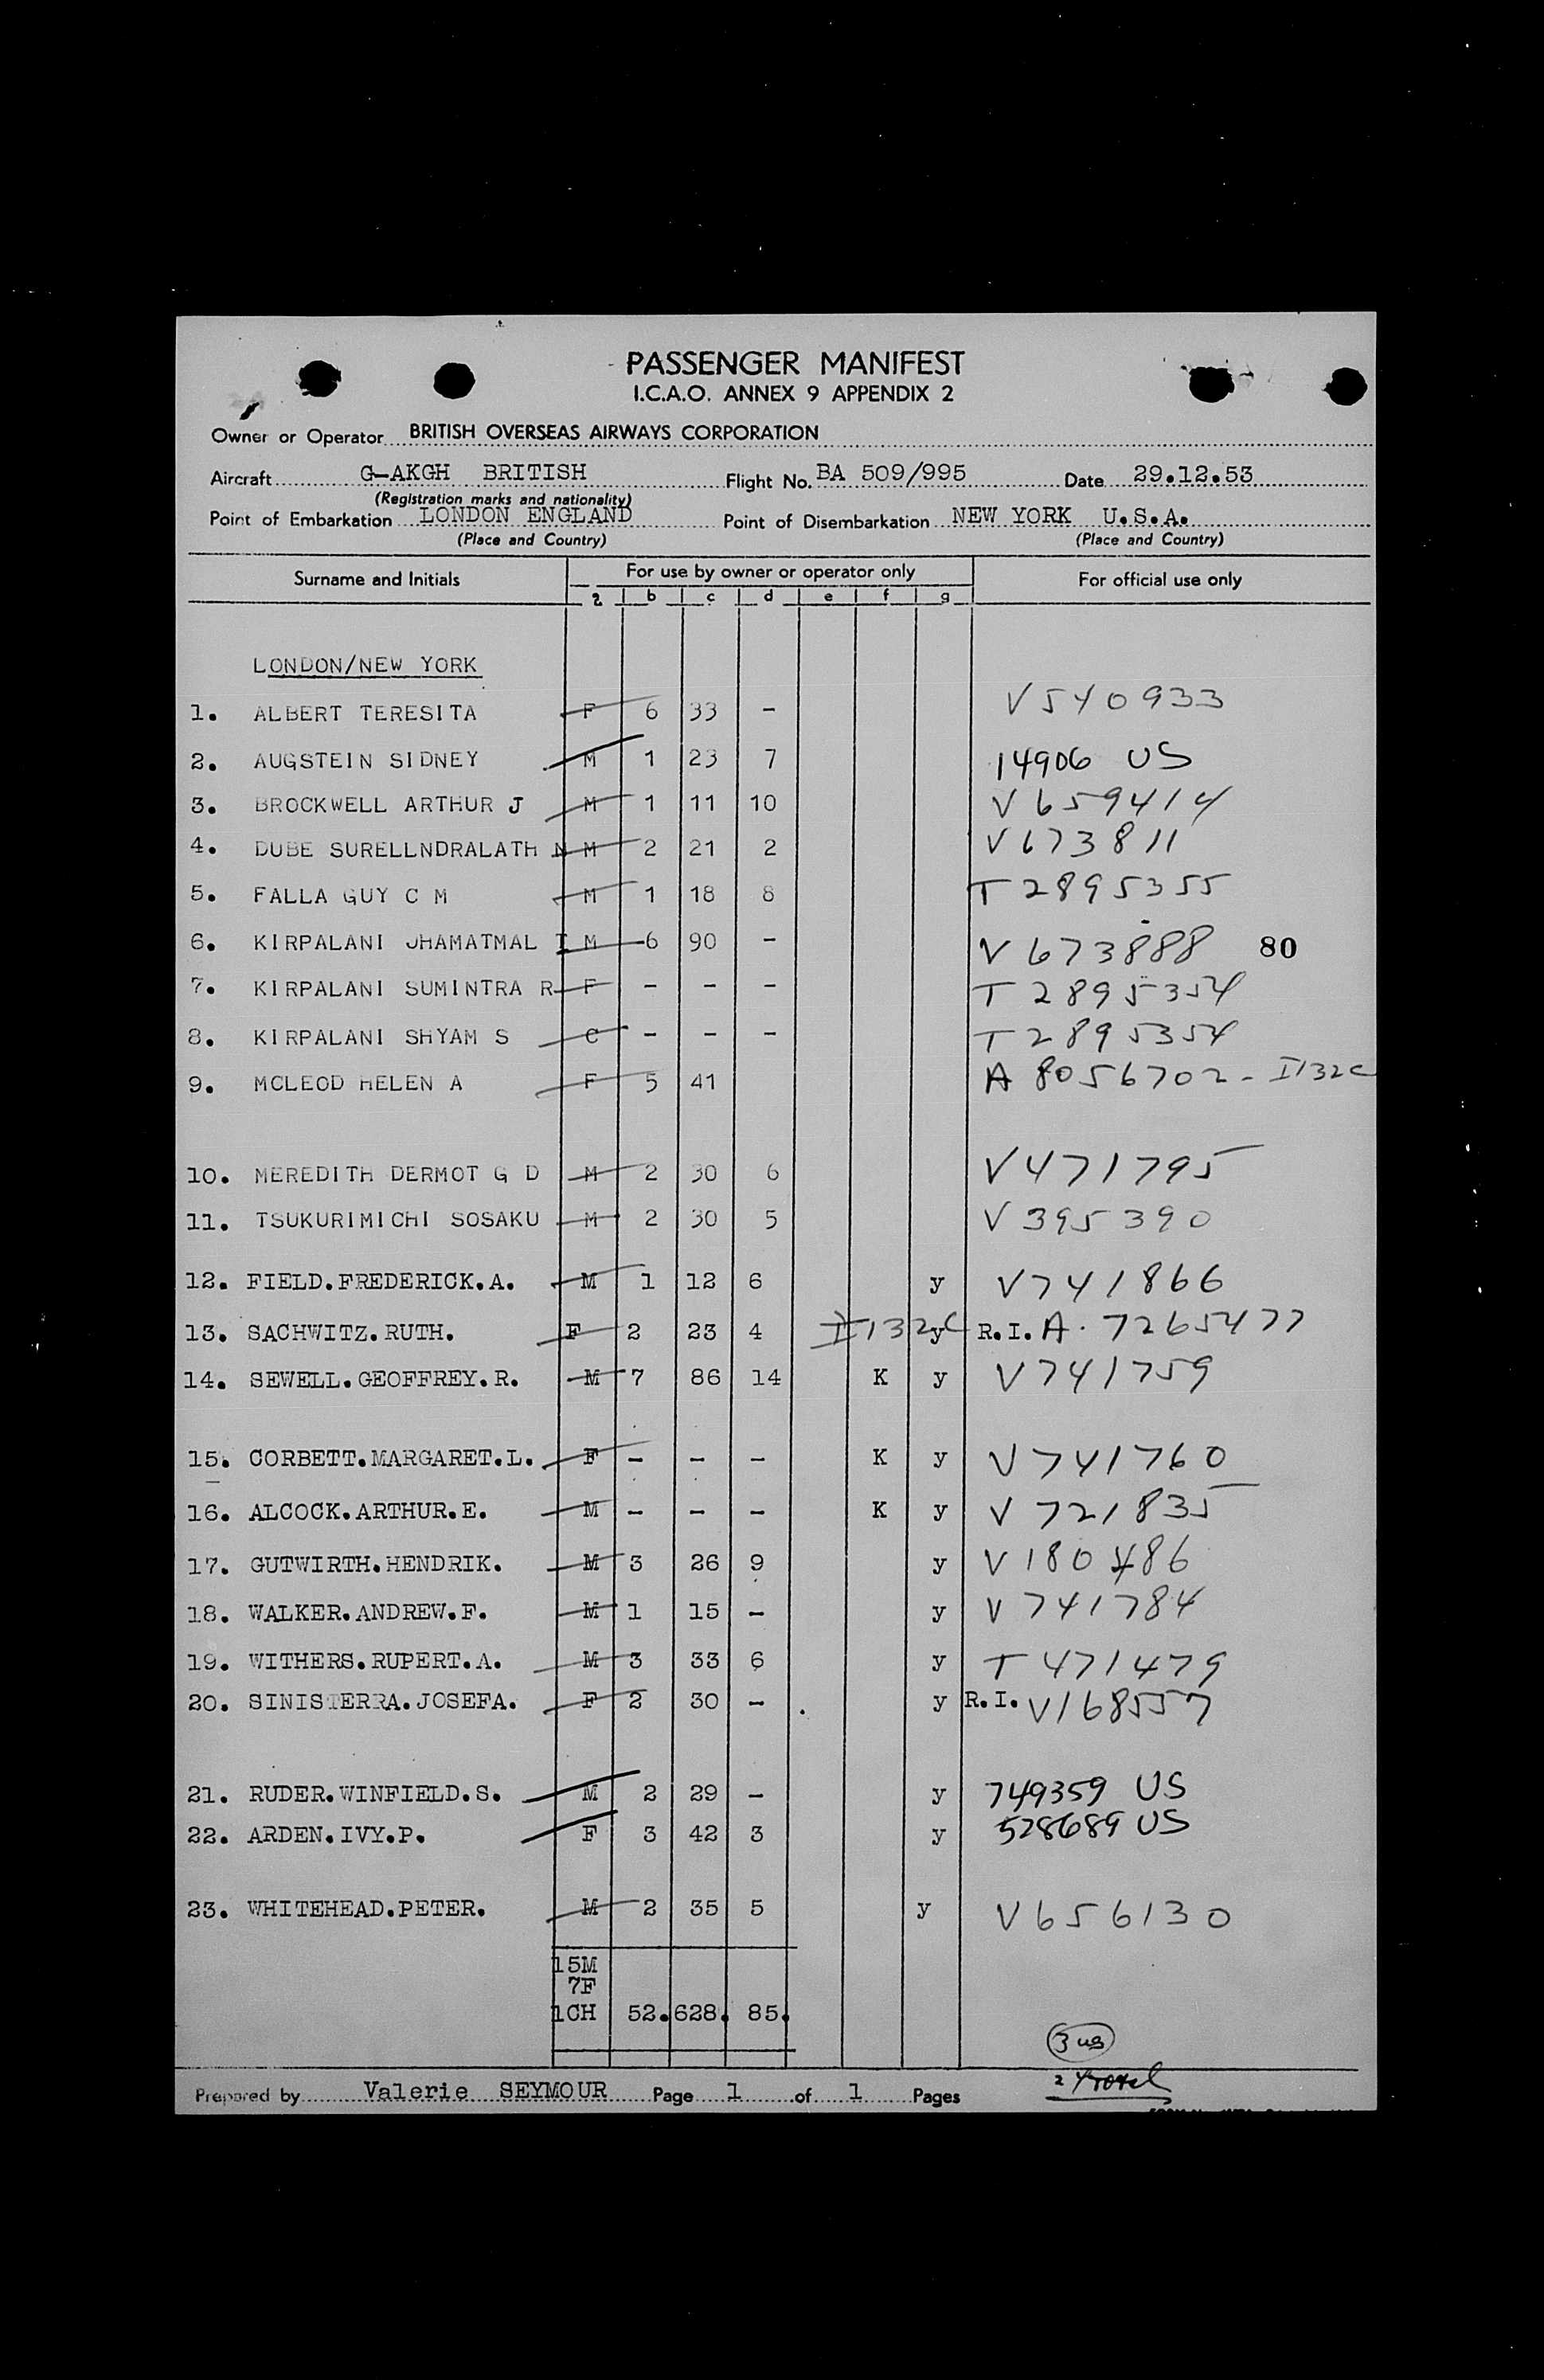 PASSENGER MANIFEST
I.C.A.O. ANNEX 9 APPENDIX 2
Owner or Operator BRITISH OVERSEAS AIRWAYS CORPORATION
Aircraft G-AKGH BRITISH Flight No. BA 509/995 Date 29.12.53
(Registration marks and nationality)
Point of Embarkation LONDON ENGLAND Point of Disembarkation NEW YORK U.S.A.
(Place and Country) (Place and Country)
Surname and Initials For use by owner or operator only For official use only
a b c d e f g
LONDON/NEW YORK
1. ALBERT TERESITA F 6 33 - V540933
2. AUGSTEIN SIDNEY M 1 23 7 14906 US
3. BROCKWELL ARTHUR J M 1 11 10 V659414
4. DUBE SURELLNDRALATH N M 2 21 2 V673811
5. FALLA GUY C M M 1 18 8 T2895355
6. KIRPALANI JHAMATMAL I M 6 90 - V673888 80
7. KIRPALANI SUMINTRA R F - - - T2895354
8. KIRPALANI SHYAM S C - - - T2895354
9. MCLEOD HELEN A F 5 41 A8056702 - I132C
10. MEREDITH DERMOT G D M 2 30 6 V471795
11. TSUKURIMICHI SOSAKU M 2 30 5 V395390
12. FIELD.FREDERICK.A. M 1 12 6 y V741866
13. SACHWITZ.RUTH. F 2 23 4 I132C y R.I. A. 7265477
14. SEWELL.GEOFFREY.R. M 7 86 14 K y V741759
15. CORBETT.MARGARET.L. F - - - K y V741760
16. ALCOCK.ARTHUR.E. M - - - K y V721835
17. GUTWIRTH.HENDRIK. M 3 26 9 y V180486
18. WALKER.ANDREW.F. M 1 15 - y V741784
19. WITHERS.RUPERT.A. M 3 33 6 y T471479
20. SINISTERRA.JOSEFA. F 2 30 - y R.I. V168557
21. RUDER.WINFIELD.S. M 2 29 - y 749359 US
22. ARDEN.IVY.P. F 3 42 3 y 528689 US
23. WHITEHEAD.PETER. M 2 35 5 y V656130
15M
7F
1CH 52. 628. 85.
3 us
Prepared by Valerie SEYMOUR Page 1 of 1 Pages